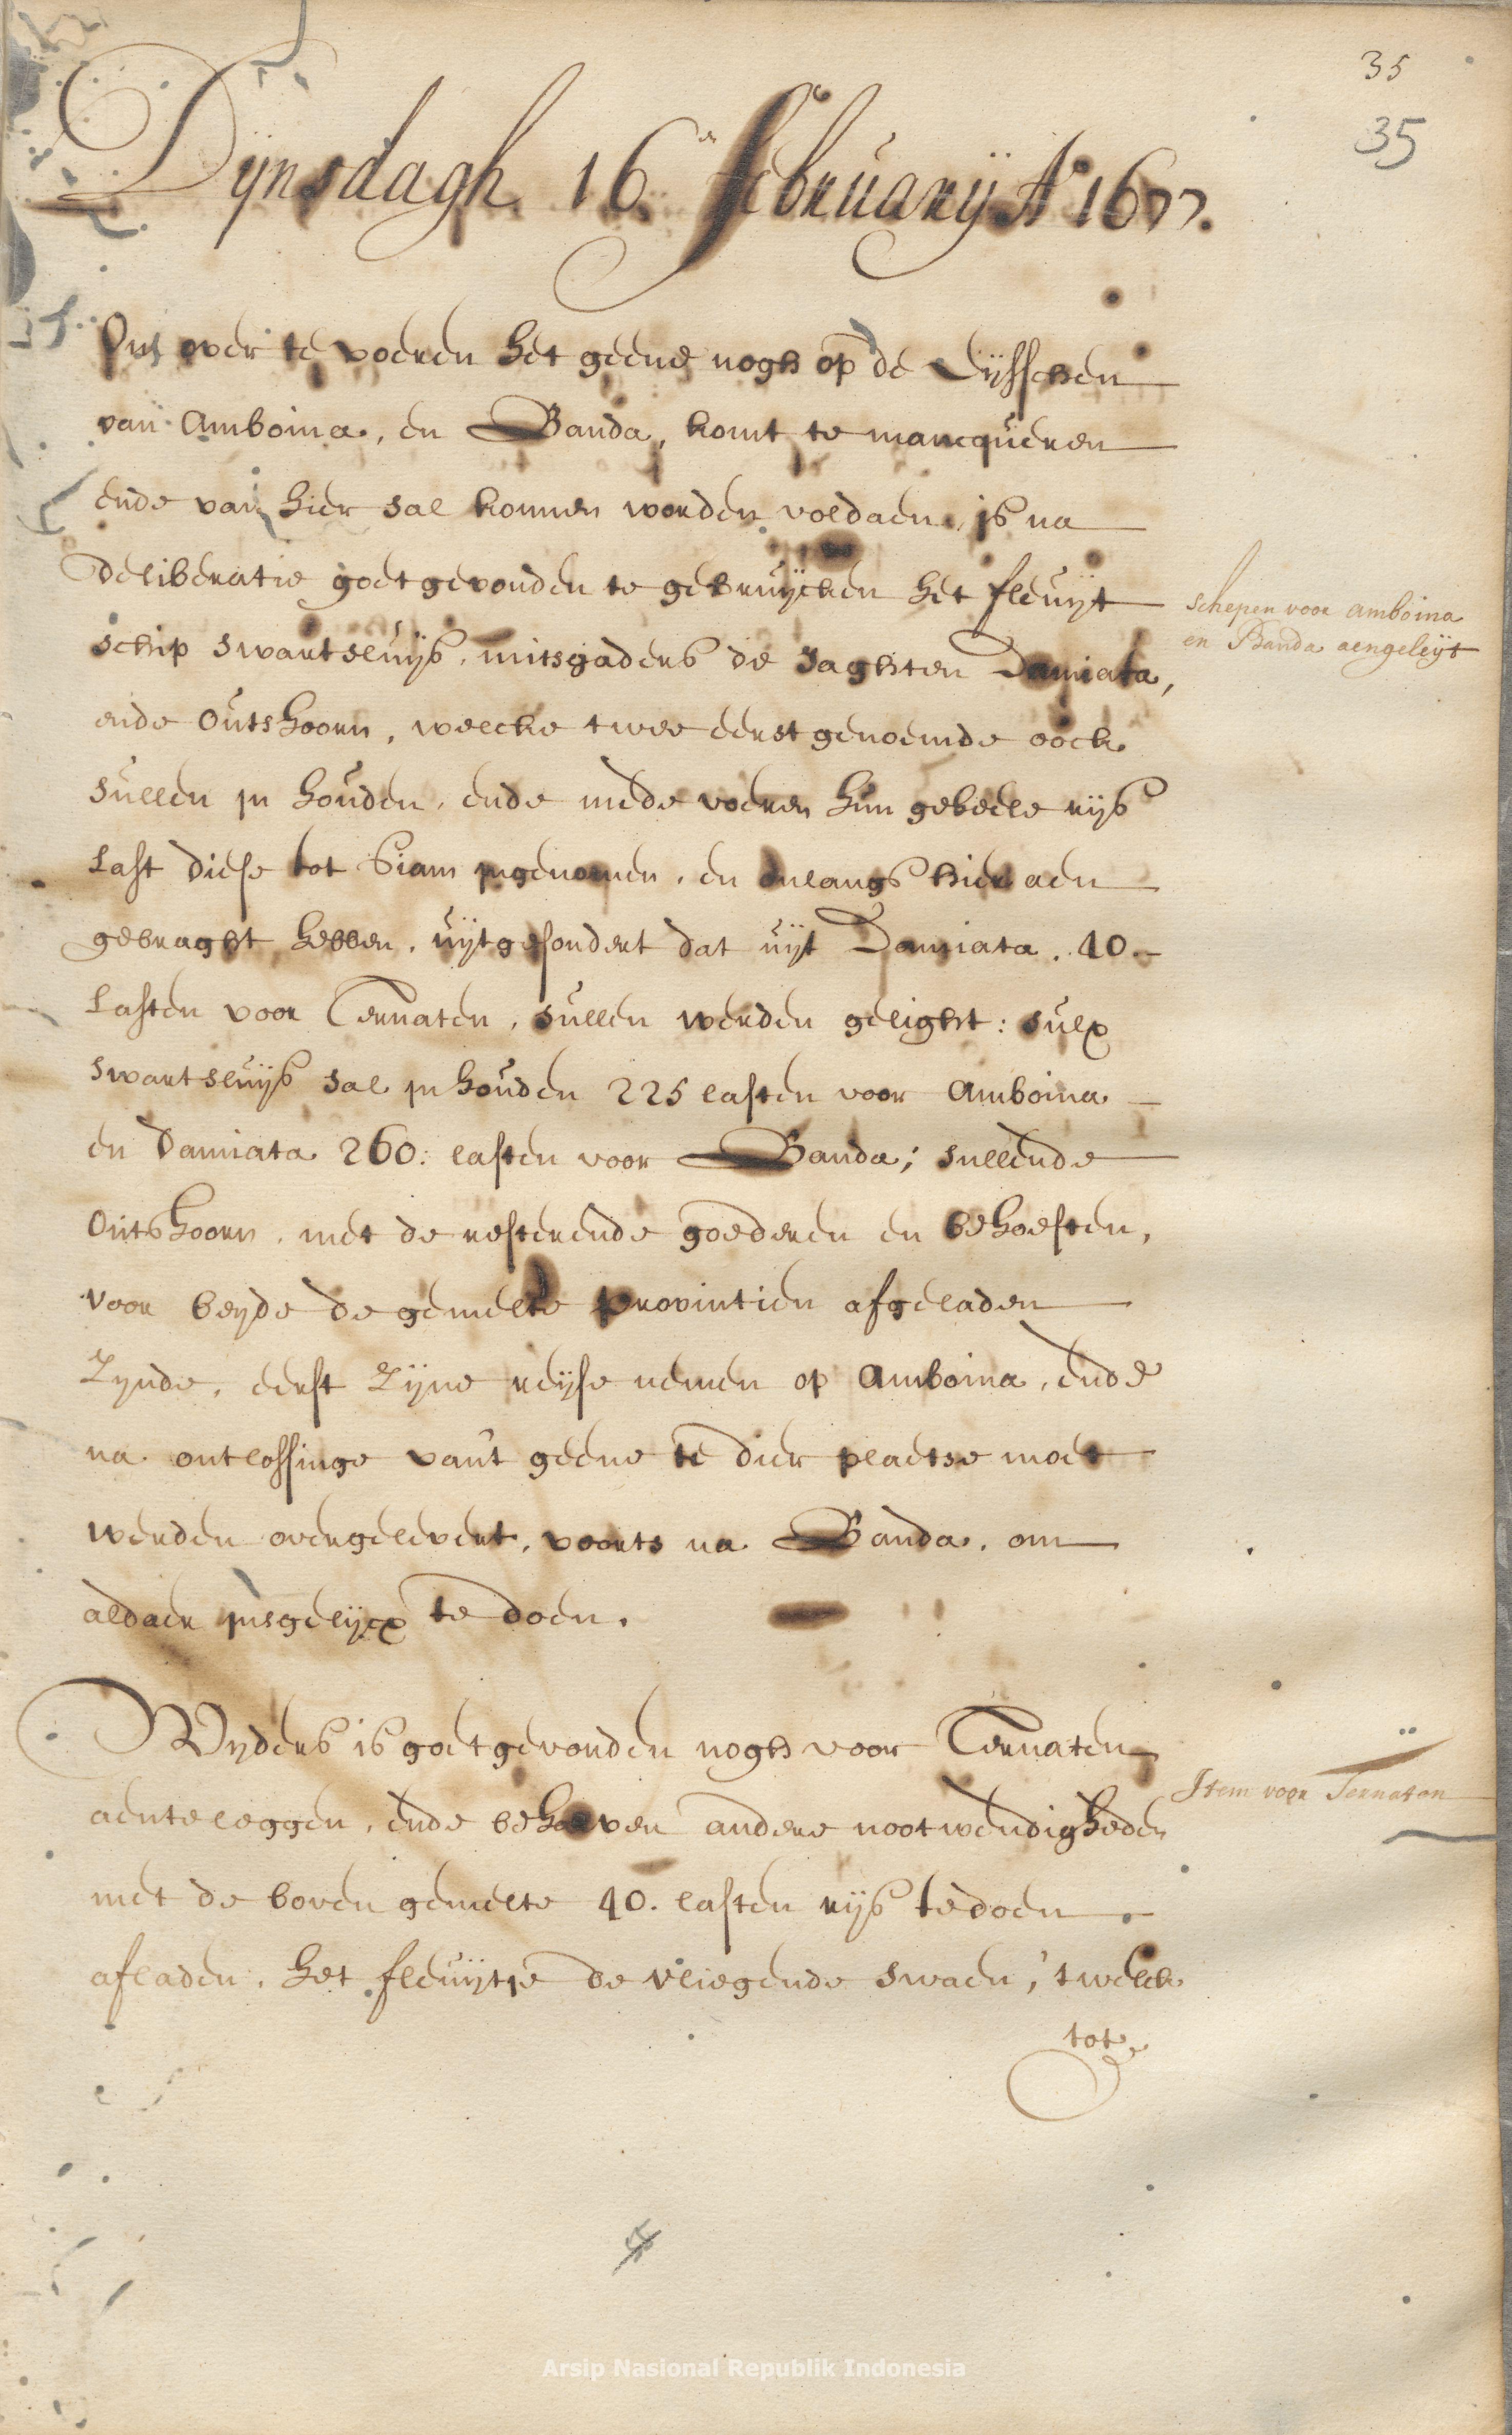 35
35
Dynsdagh 16.en february A.o 1677.
Om over te voeren het geene nogh op de Lijsschen
van Amboina, en Banda, komt te mancqueren
ende van hier sal konnen worden voldaen, is na
deliberatie goetgevonden te gebruijcken het fleuijt
schip swartsluijs, mitsgaders de Jaghten Damiata,
ende Outshoorn, welcke twee eerstgenoemde oock
sullen in houden, ende mede voeren hun geheele rijs
last diese tot Siam ingenomen, en onlangs hier aen
gebraght hebben, uijtgesondert dat uijt Damiata. 40.-
lasten voor Ternaten, sullen werden gelight: sulx
swartsluijs sal in houden 225 lasten voor Amboina
en Damiata 260: lasten voor Banda; sullende
Outshoorn, met de resterende goederen en behoeften,
voor beyde de gemelte provintien afgeladen
Zynde, eerst Zijne reijse nemen op Amboina, ende
na ontlossinge van't geene te dier plaetse moet
werden overgelevert, voorts na Banda. om
aldaer insgelijcx te doen.
schepen voor amboina
en Banda aengeleijt
Wyders is goetgevonden nogh voor Ternaten
aenteleggen, ende behalven andere nootwendigheden
met de boven gemelte 40. lasten rijs te doen
afladen, het fleuijtje de vliegende swaen, 't welck
tot
Item voor Ternaten
Arsip Nasional Republik Indonesia